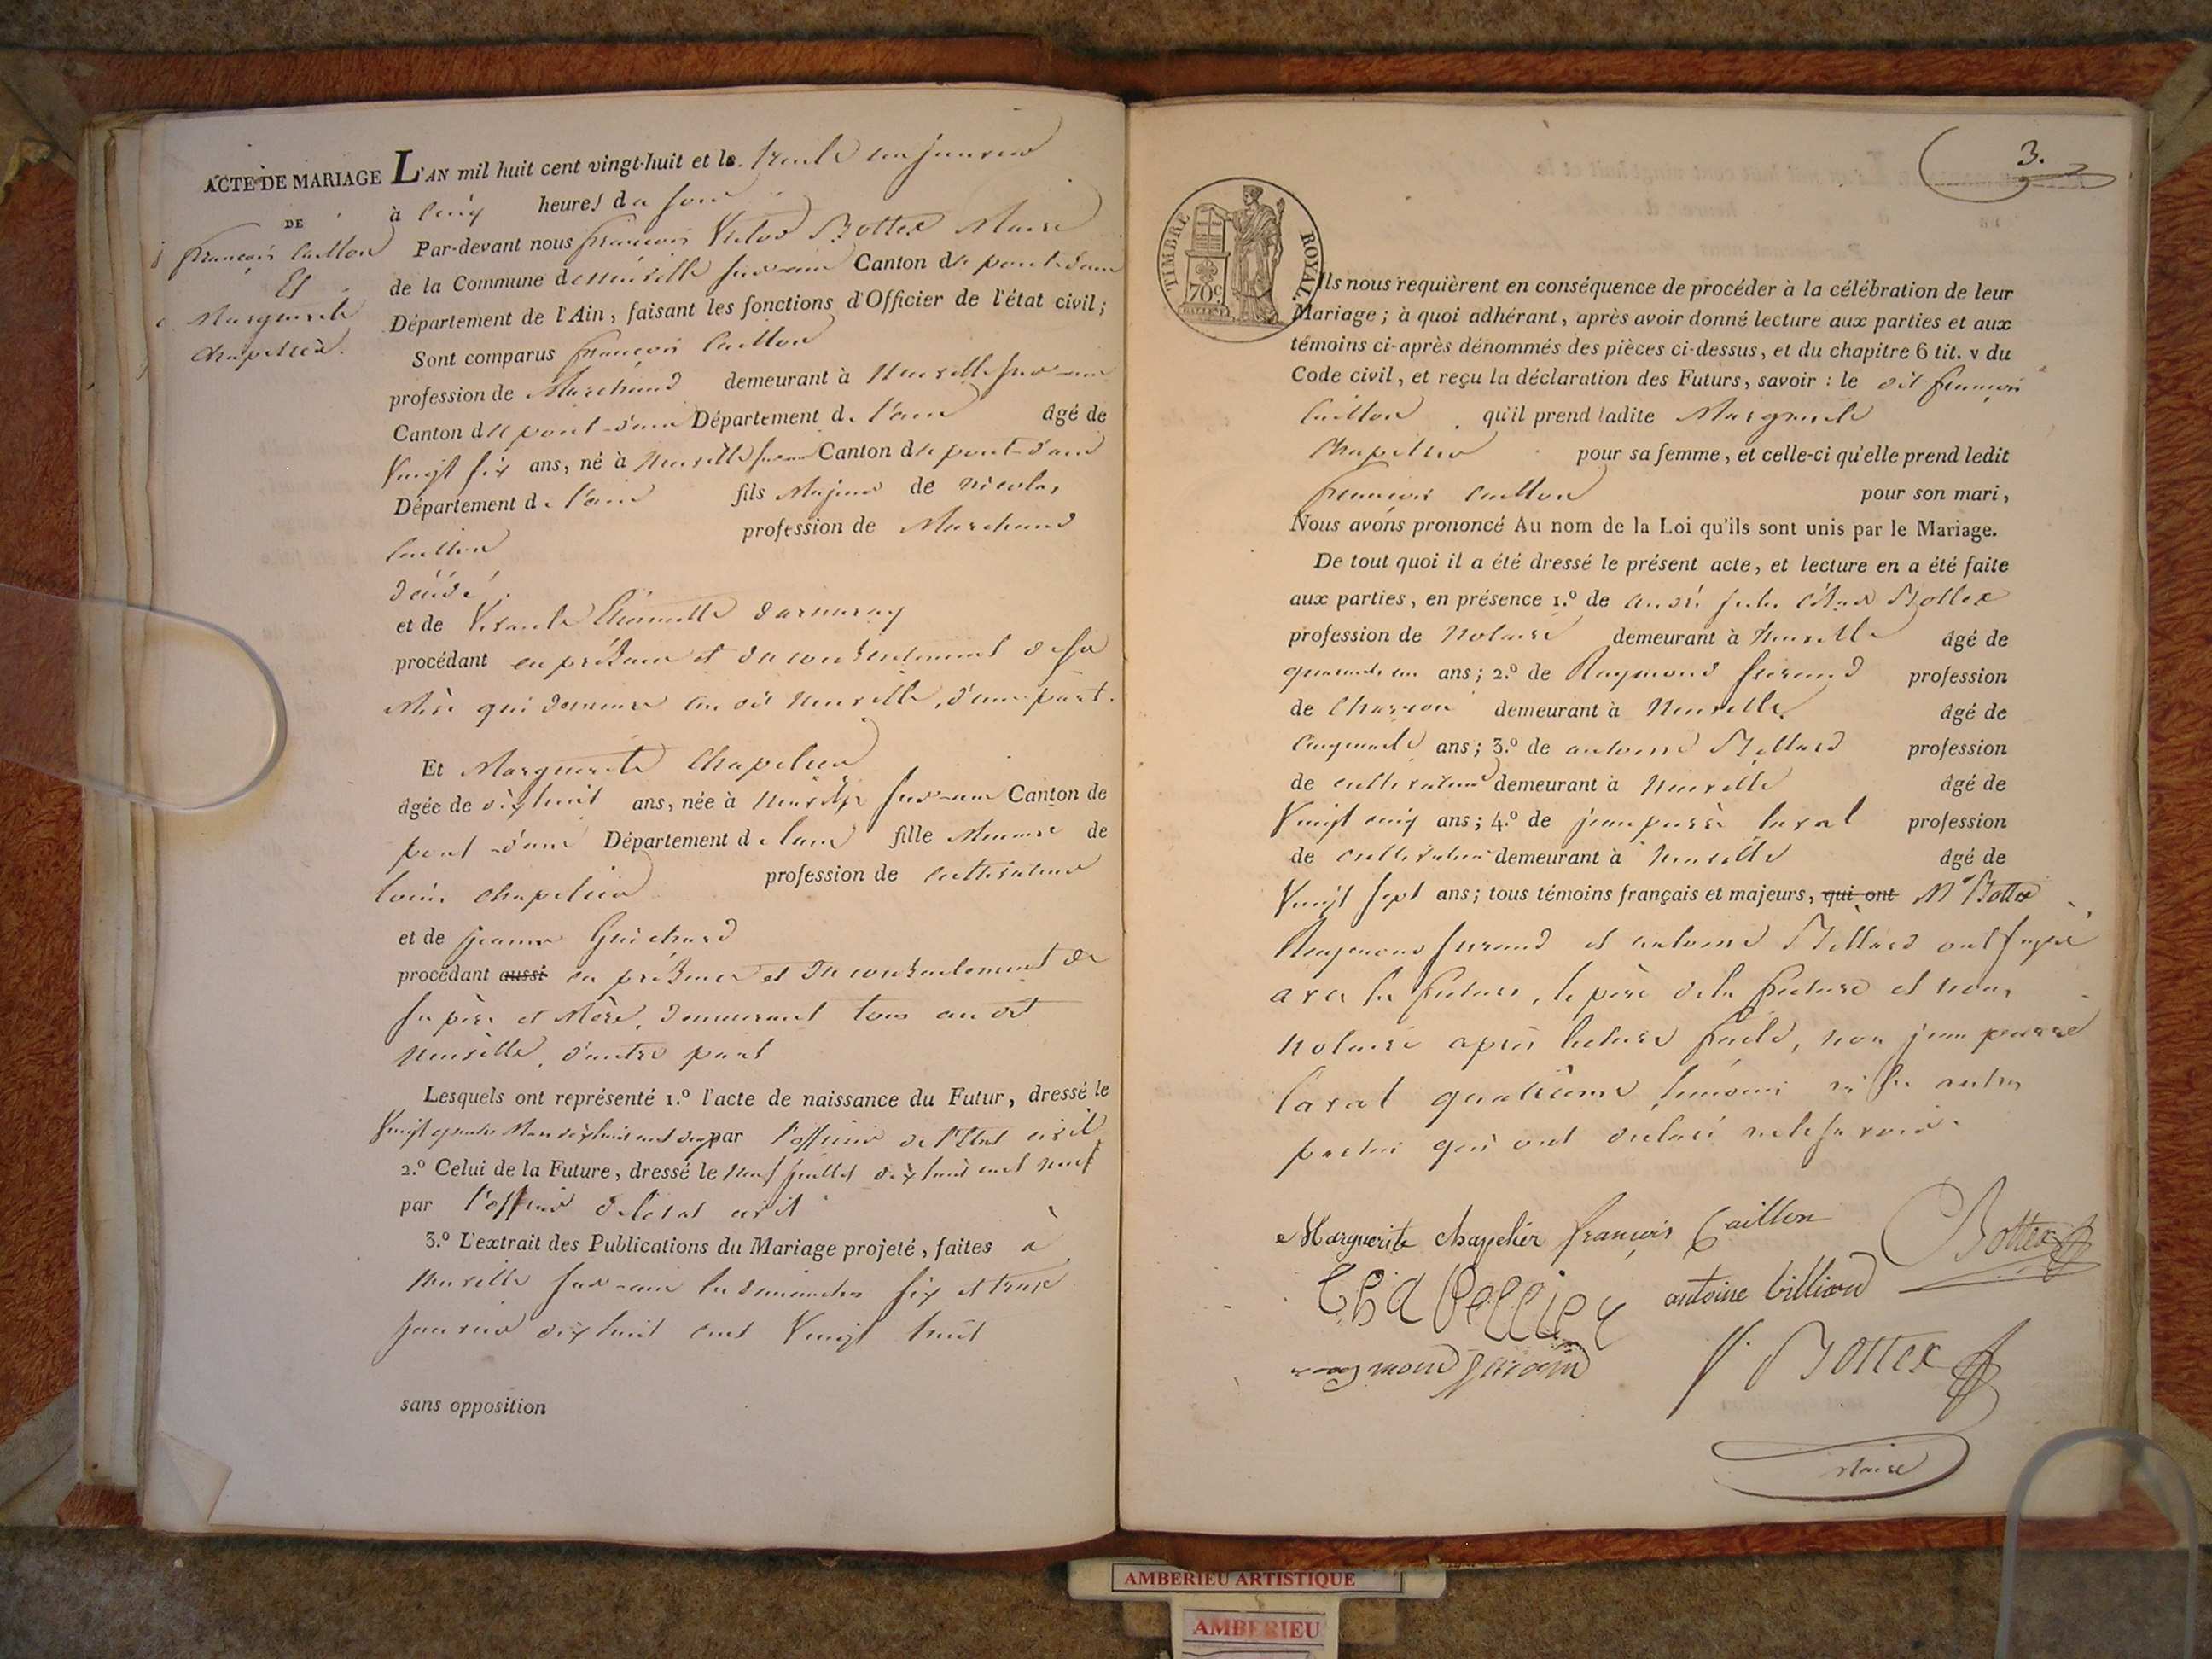 ACTE DE MARIAGE
DE
François Caillon
Et
Marguerite
Chapellier.
L'AN mil huit cent vingt-huit et le trente un janvier
à cinq heures du soir
Par-devant nous françois Victor Bottex Maire
de la Commune de neuville sur-ain Canton de pont-d'ain
Département de l'Ain, faisant les fonctions d'Officier de l'état civil;
Sont comparus françois Caillon
profession de Marchand demeurant à Neuville sur-ain
Canton de pont-d'ain Département de l'ain âgé de
Vingt six ans, né à Neuville sur-ain Canton de pont-d'ain
Département de l'ain fils Majeur de nicolas
Caillon profession de Marchand
décédé.
et de Vivante Etiennette
procédant en présence et du consentement de sa
Mère qui demeure au dit Neuville, d'une part.
Et Marguerite Chapelier
âgée de dix huit ans, née à Neuville sur-ain Canton de
pont-d'ain Département de l'ain fille Mineure de
Louis Chapelier profession de Cultivateur
et de Jeanne Guichard
procédant aussi en présence et du consentement de
ses père et Mère, demeurant tous au dit
Neuville, d'autre part
Lesquels ont représenté 1.º l'acte de naissance du Futur, dressé le
Vingt quatre Mars dix huit cent deux par l'officier de l'Etat civil
2.º Celui de la Future, dressé le neuf juillet dix huit cent neuf
par l'officier de l'état civil
3.º L'extrait des Publications du Mariage projeté, faites à
Neuville sur-ain les dimanches six et treize
janvier dix huit cent Vingt huit
sans opposition
3.
TIMBRE ROYAL
70 c
Ils nous requièrent en conséquence de procéder à la célébration de leur
Mariage; à quoi adhérant, après avoir donné lecture aux parties et aux
témoins ci-après dénommés des pièces ci-dessus, et du chapitre 6 tit. v du
Code civil, et reçu la déclaration des Futurs, savoir: le dit françois
Caillon qu'il prend ladite Marguerite
Chapellier pour sa femme, et celle-ci qu'elle prend ledit
françois Caillon pour son mari,
Nous avons prononcé Au nom de la Loi qu'ils sont unis par le Mariage.
De tout quoi il a été dressé le présent acte, et lecture en a été faite
aux parties, en présence 1.º de andré jules César Bottex
profession de Notaire demeurant à Neuville âgé de
quarante un ans; 2.º de Raymond profession
de Charron demeurant à Neuville âgé de
Cinquante ans; 3.º de antoine Billard profession
de cultivateur demeurant à Neuville âgé de
Vingt cinq ans; 4.º de jean pierre laval profession
de cultivateur demeurant à Neuville âgé de
Vingt sept ans; tous témoins français et majeurs, qui ont Mr Bottex
Raymond et antoine Billard ont signé
avec les future, le père de la future et nous
notaire après lecture faite, non jean pierre
laval quatrième témoin ni les autres
parties qui ont déclaré ne le savoir.
Marguerite chapelier françois Caillon Bottex
Chapellier antoine billiard
V. Bottex
Maire
AMBERIEU ARTISTIQUE
AMBERIEU